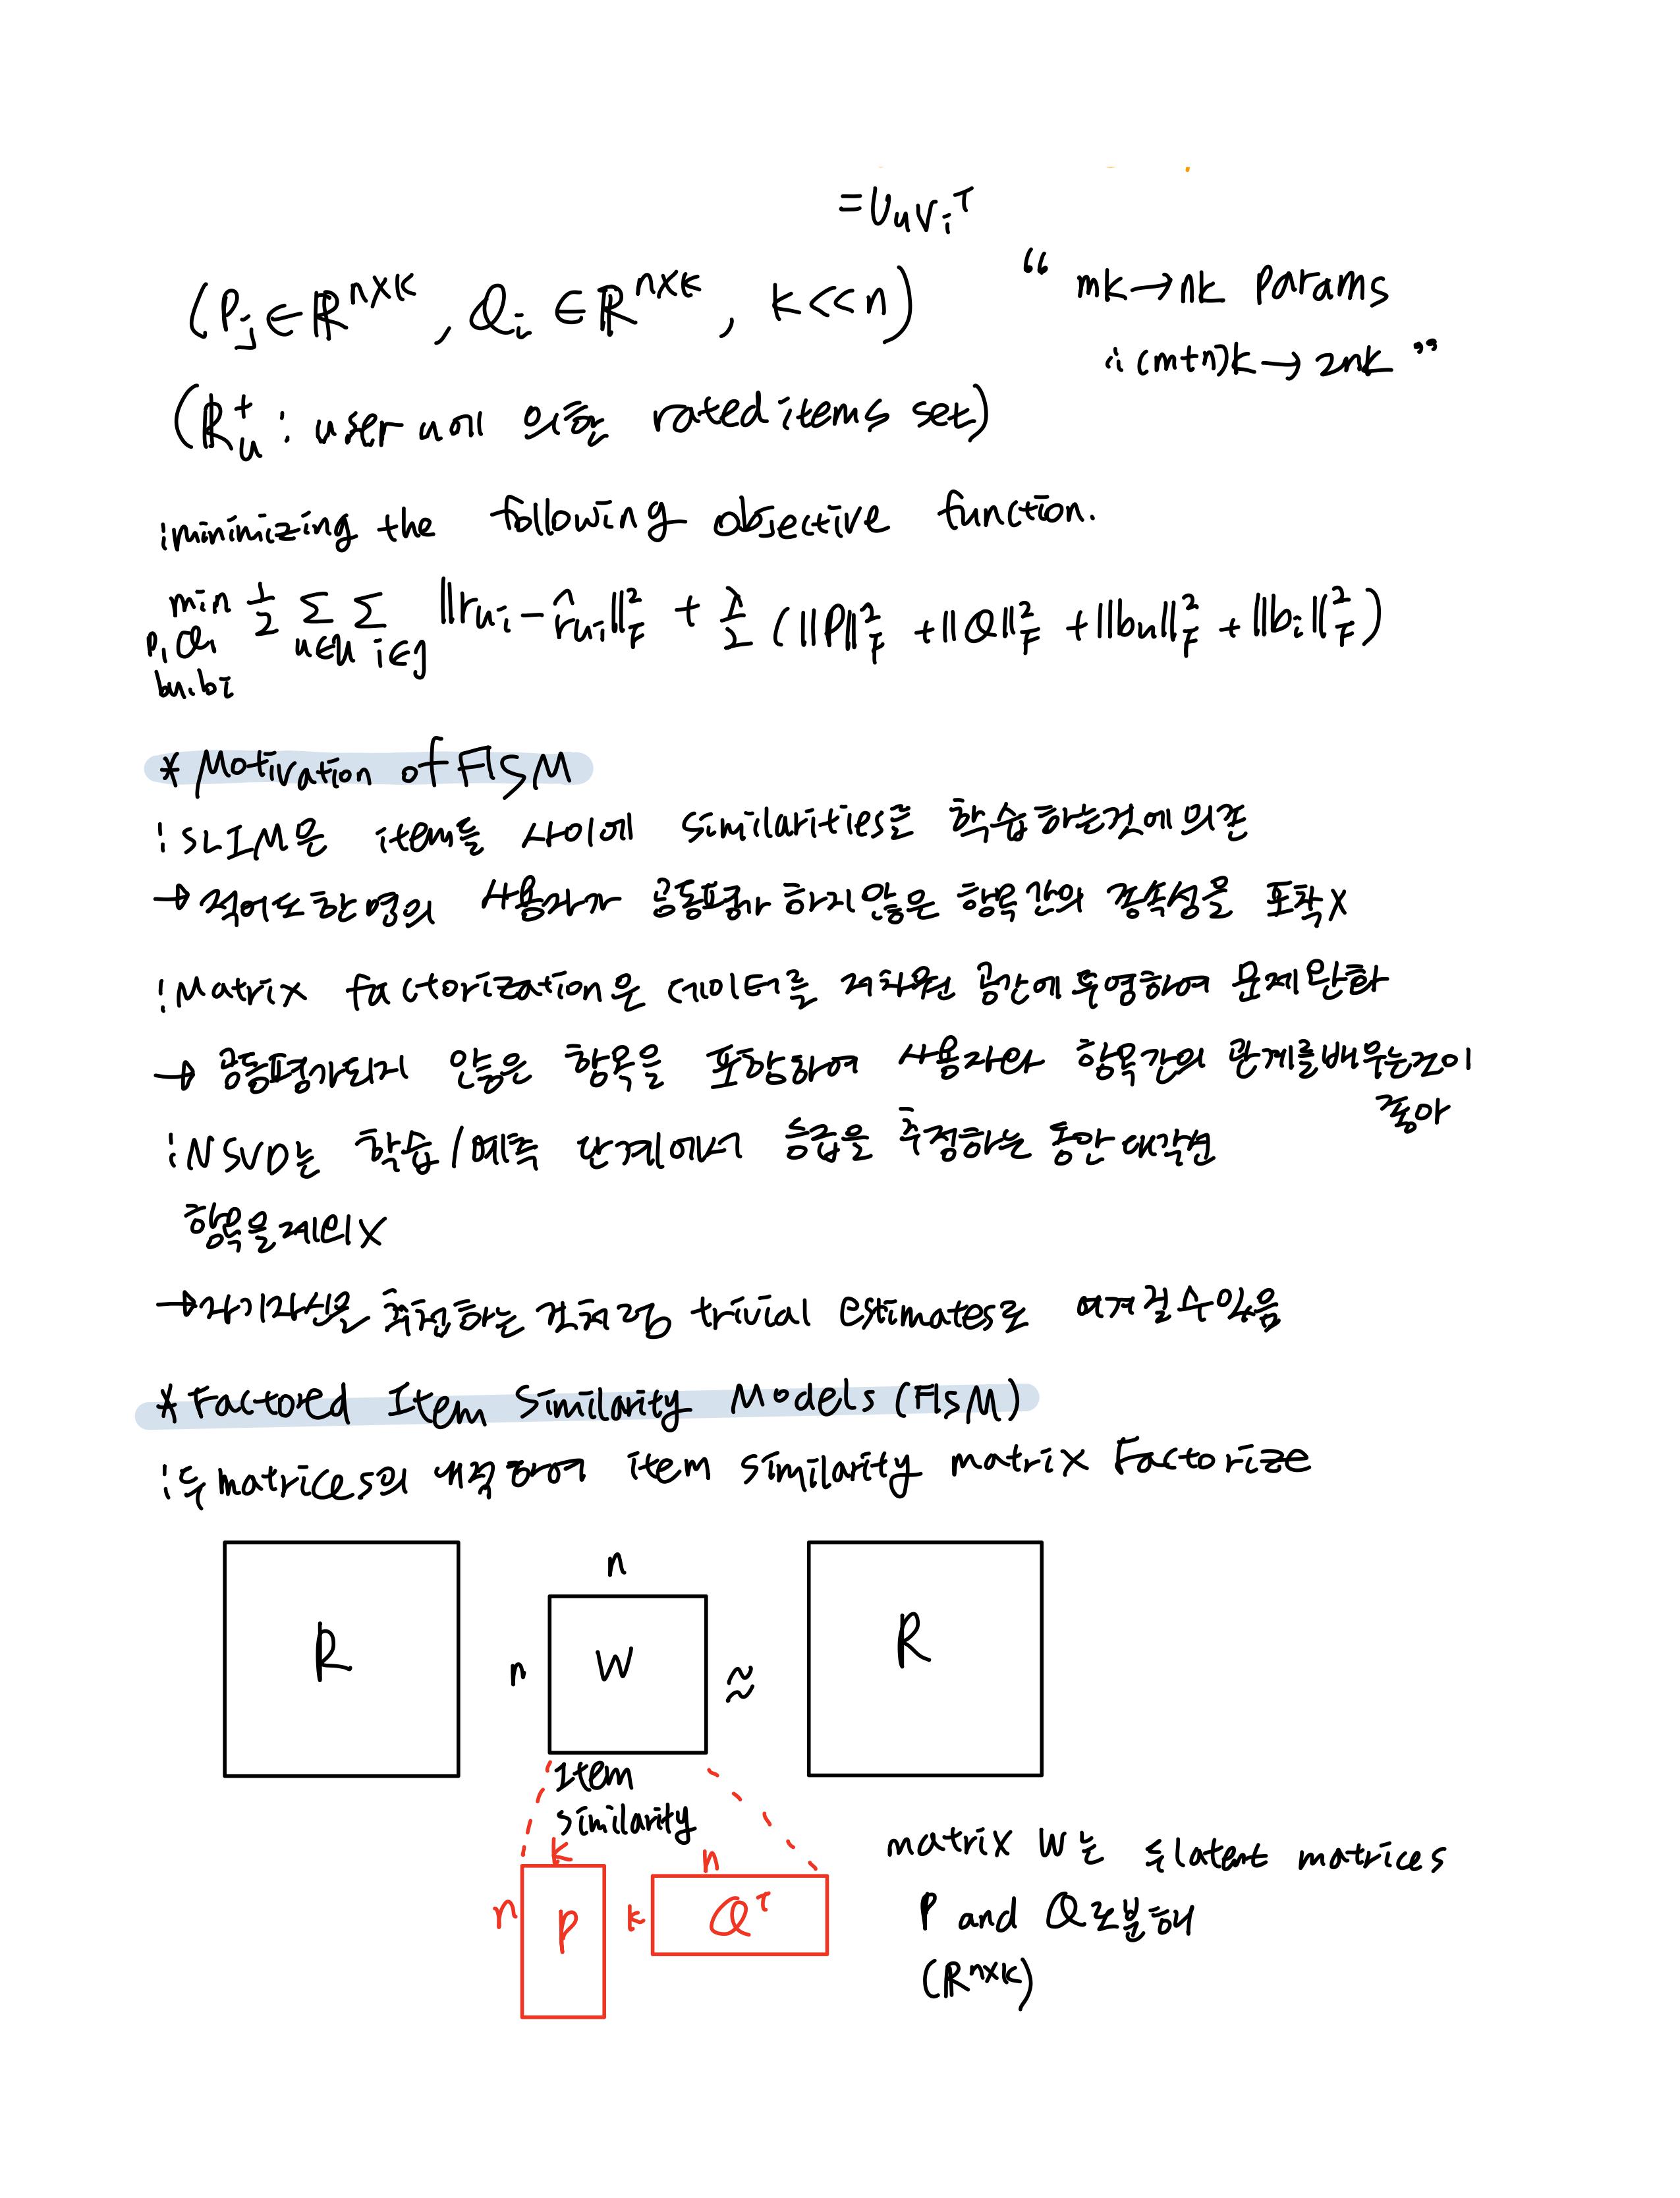 = U_u V_i^T
(P_j ∈ ℝ^{n×k}, Q_i ∈ ℝ^{n×k}, k << n)
“ mk → nk params
∴ (m+n)k → 2nk ”
(ℝ_u^+ : user u에 의한 rated items set)
: minimizing the following objective function.
min 1/2 Σ Σ ||r_ui - r̂_ui||_F^2 + λ/2 (||P||_F^2 + ||Q||_F^2 + ||b_u||_F^2 + ||b_i||_F^2)
P, Q, u∈U i∈J
bu, bi
* Motivation of FISM
: SLIM은 item들 사이에 similarities로 학습하는것에 의존
→ 적어도 한 명의 사용자가 공동평가 하지 않은 항목 간의 종속성을 포착X
: Matrix factorization은 데이터를 저차원 공간에 투영하여 문제 완화
→ 공동평가되지 않은 항목을 포함하여 사용자와 항목간의 관계를 배우는것이
좋아
: NSVD는 학습/예측 단계에서 등급을 추정하는 동안 대각선
항목을 제외X
→ 자기자신을 추천하는 것처럼 trivial estimates로 여겨질수있음
* Factored Item Similarity Models (FISM)
: 두 matrices의 내적하여 item similarity matrix Factorize
n
R n W ≈ R
Item
similarity
k n
n P k Q^T
matrix W는 두 latent matrices
P and Q로 분해
(R^{n×k})